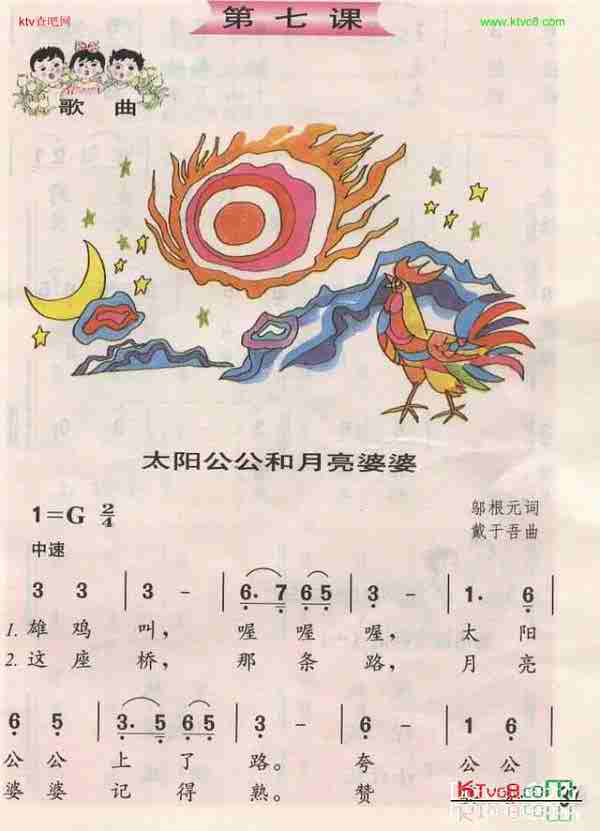 ktv查吧网
第七课
www.ktvc8.com
歌曲
太阳公公和月亮婆婆
1=G 2/4
邬根元词
戴于吾曲
中速
3 3 | 3 - | 6. 7 6 5 | 3 - | 1. 6 |
1. 雄鸡叫， 喔喔喔， 太阳
2. 这座桥， 那条路， 月亮
6 5 | 3. 5 6 5 | 3 - | 6 - | 1 6 |
公公上了路。 夸 公公
婆婆记得熟。 赞
KTvc8.co